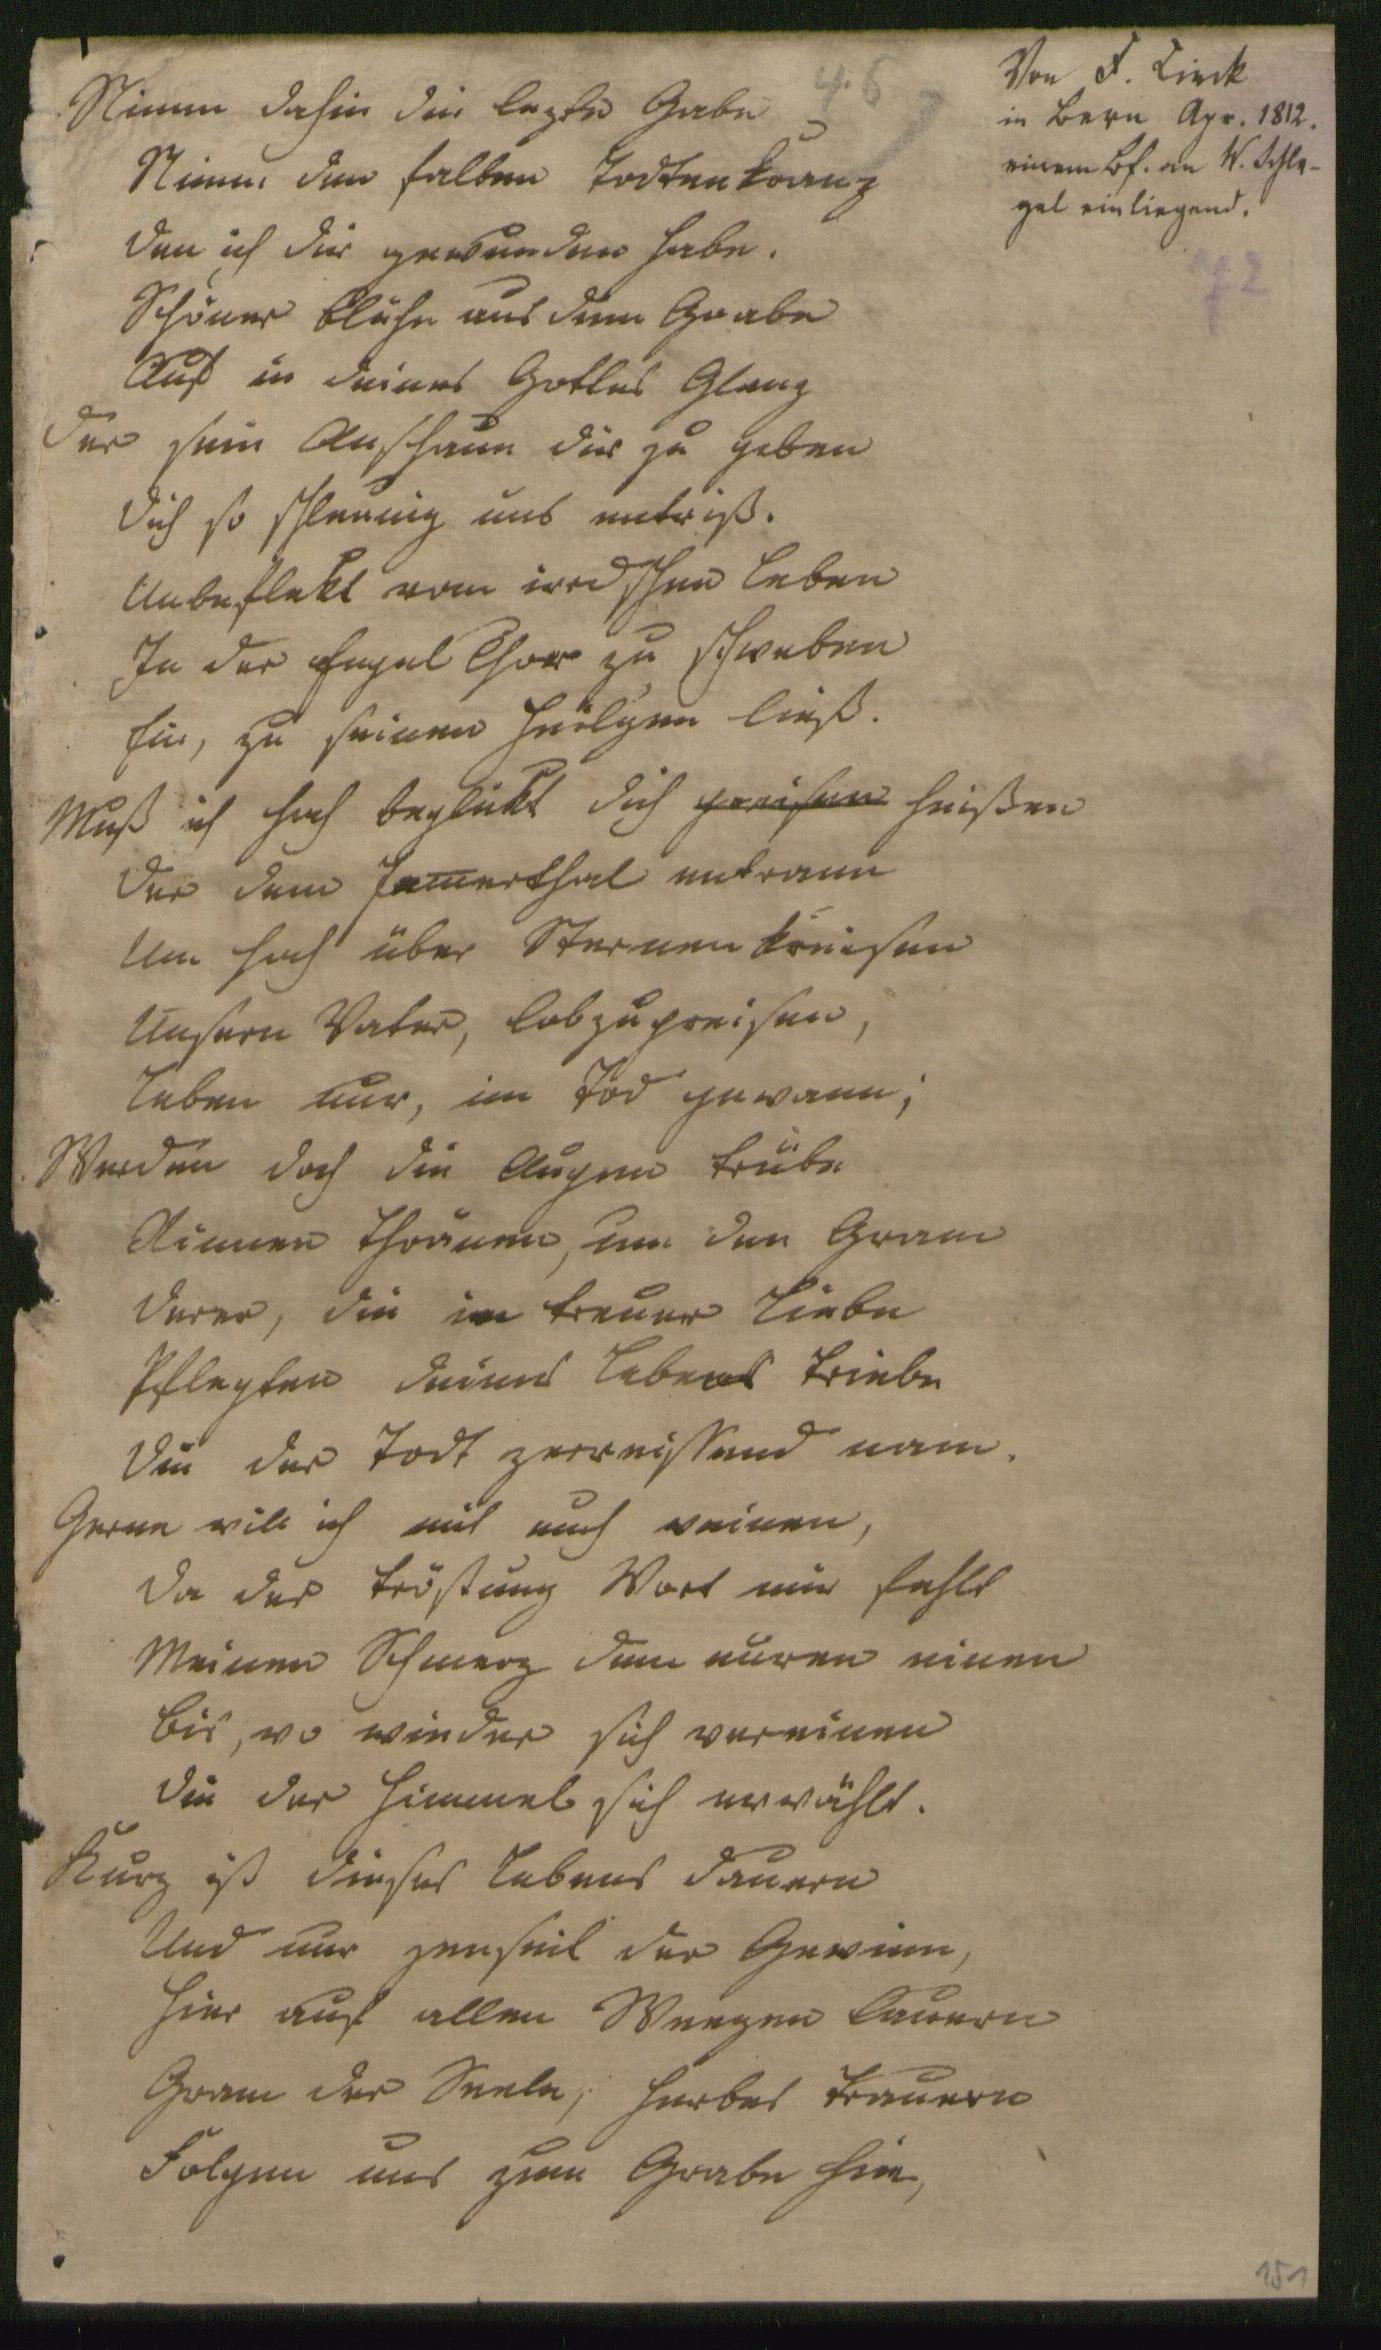 Von F. Tieck
in Bern Apr. 1812.
einem Bf. an W. Schle-
gel einliegend.
46
72
Nimm dahin die lezte Gabe
Nimm den falben Todtenkranz
Den ich dir gewunden habe.
Schöner blühe aus dem Grabe
Auf in deines Gottes Glanz
Der sein Anschaun dir zu geben
Dich so schleunig uns entriß.
Unbeflekt vom irrdschen Leben
In der Engel Chor zu schweben
Ein, zu seinen Heilgen ließ.
Muß ich hoch beglükt dich preisen heißen
Der dem Jamerthal entrann
Um hoch über Sternen kreisen
Unsern Vater, lobzupreisen,
Leben nur, im Tod gewann;
Werden doch die Augen trübe
Rinnen Thränen, um den Gram
Derer, die in treuer Liebe
Pflegten deines Lebens Triebe
Die der Todt zerreissend nam.
Gerne will ich mit euch weinen,
Da der Tröstung Wort mir fehlt
Meinen Schmerz dem euren einen
Bis, wo wieder sich vereinen
Die der Himmel sich erwählt.
Kurz ist dieses Lebens Dauern
Und nur jenseit der Gewinn,
Hier auf allen Weegen lauern
Gram der Seele, herbes Trauern
Folgen uns zum Grabe hin,
151